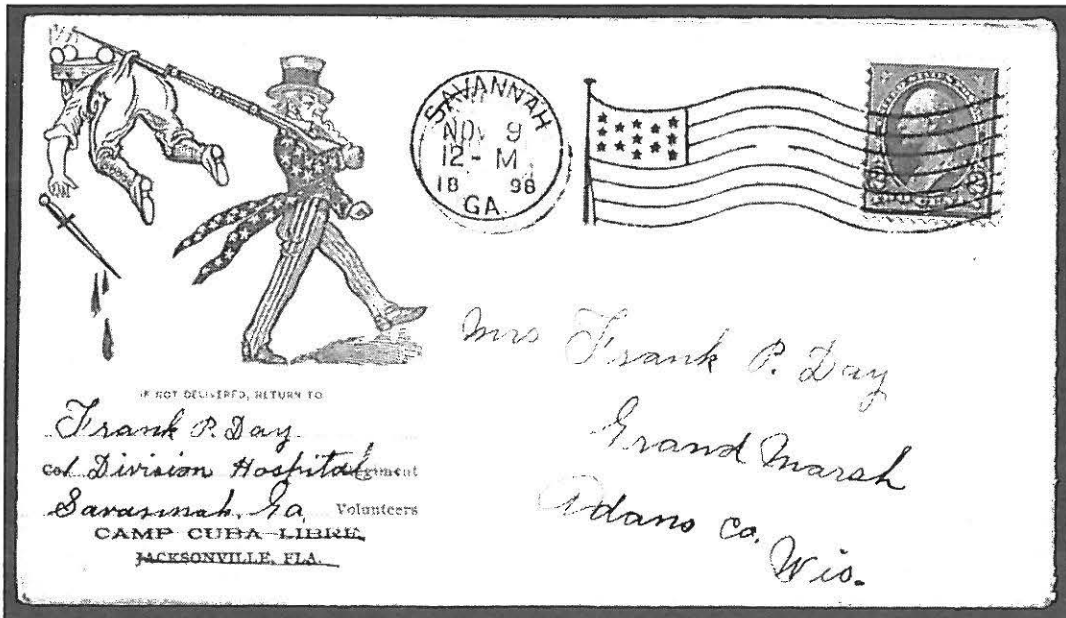 SAVANNAH
NOV 9
12-M
18 98
GA.
IF NOT DELIVERED, RETURN TO
Frank P. Day
Co. 1 Division Hospital Regiment
Savannah, Ga. Volunteers
CAMP CUBA LIBRE,
JACKSONVILLE, FLA.
Mrs Frank P. Day
Grand Marsh
Adams Co.
Wis.